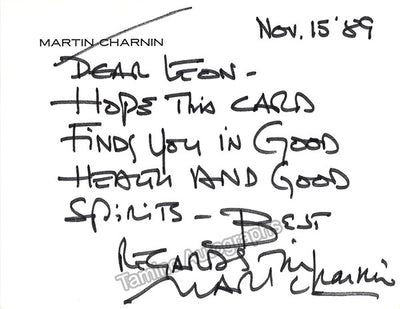 Nov. 15 '89
MARTIN CHARNIN
DEAR LEON -
HOPE THIS CARD
FINDS YOU IN GOOD
HEALTH AND GOOD
SPIRITS - BEST
REGARDS
Tamino Autographs
MARTIN Charnin